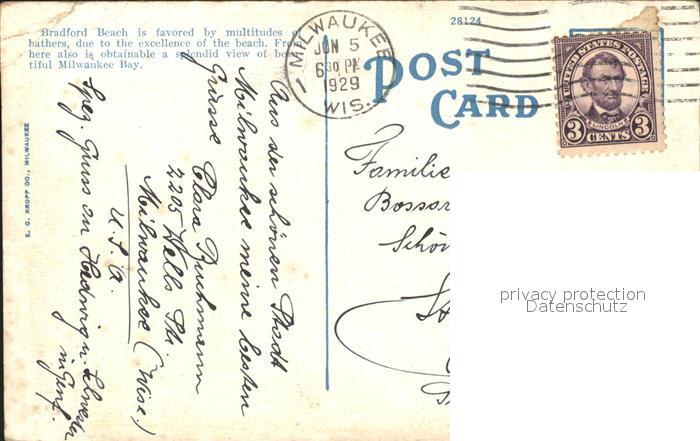 Bradford Beach is favored by multitudes of
bathers, due to the excellence of the beach. From
here also is obtainable a splendid view of beau-
tiful Milwaukee Bay.
28124
MILWAUKEE
1
JUN 5
6 30 PM
1929
WIS.
POST
CARD
UNITED STATES POSTAGE
LINCOLN
3 CENTS 3
E. C. KROPP CO., MILWAUKEE
Aus der schönen Stadt
Milwaukee meine besten
Grüsse
Clara Buchmann
2205 Wells Str.
Milwaukee (Wisc.)
U.S.A.
Spez. Gruss an Hedwig u. Schwester
in Genf.
Familie
Bossar
Schön
privacy protection
Datenschutz